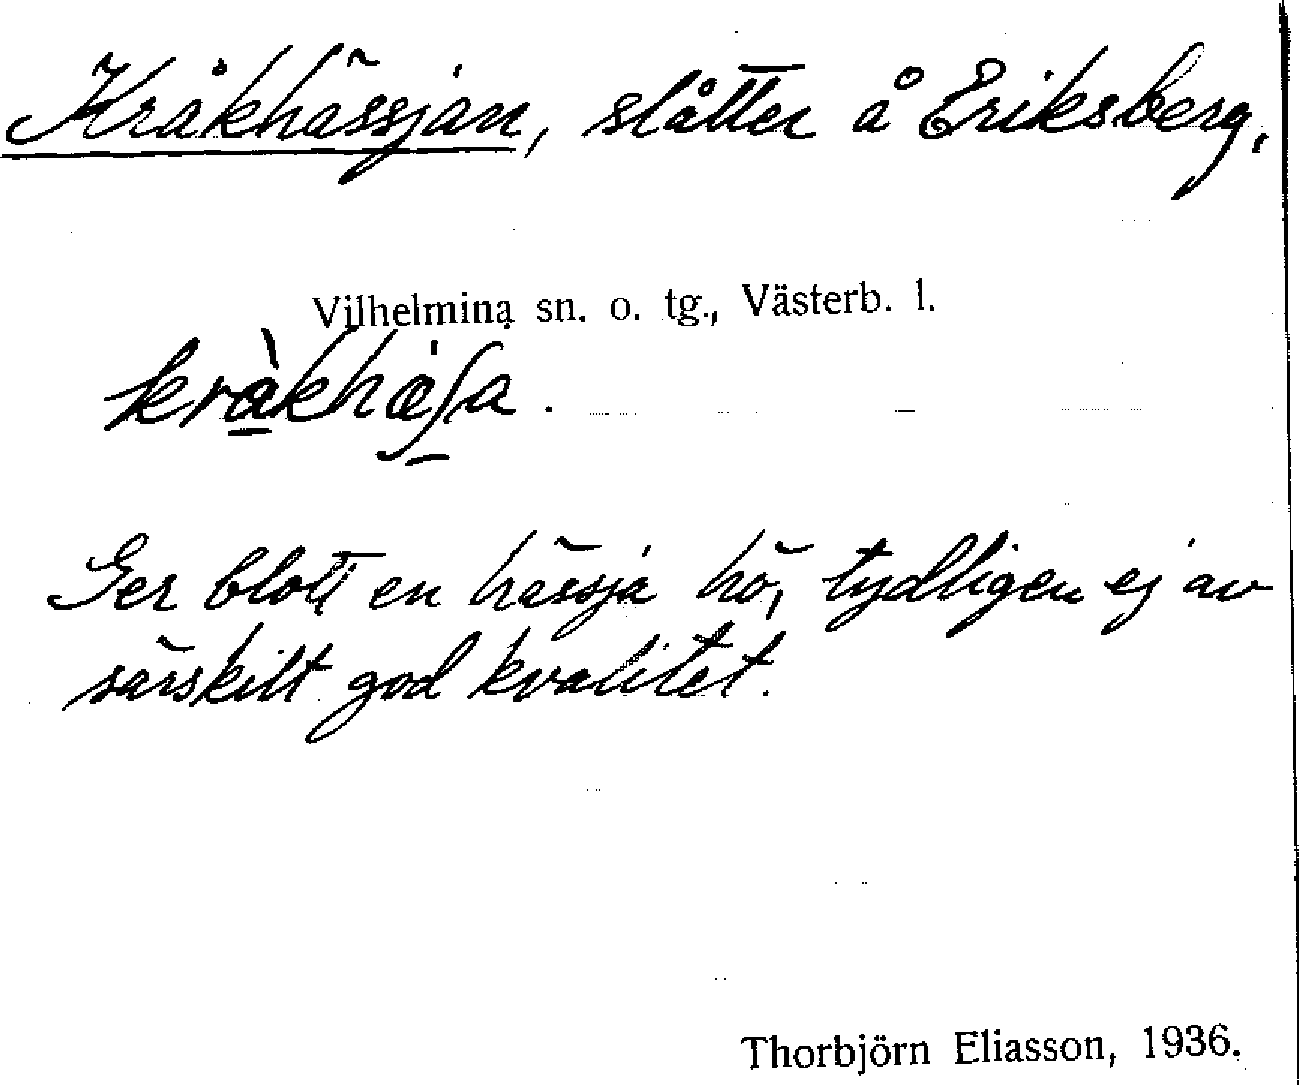 Kråkhässjan, slåtter å Eriksberg,
Vilhelmina sn. o. tg., Västerb. l.
Ger blott en hässja hö, tydligen ej av
särskilt god kvalitet.
Thorbjörn Eliasson, 1936.